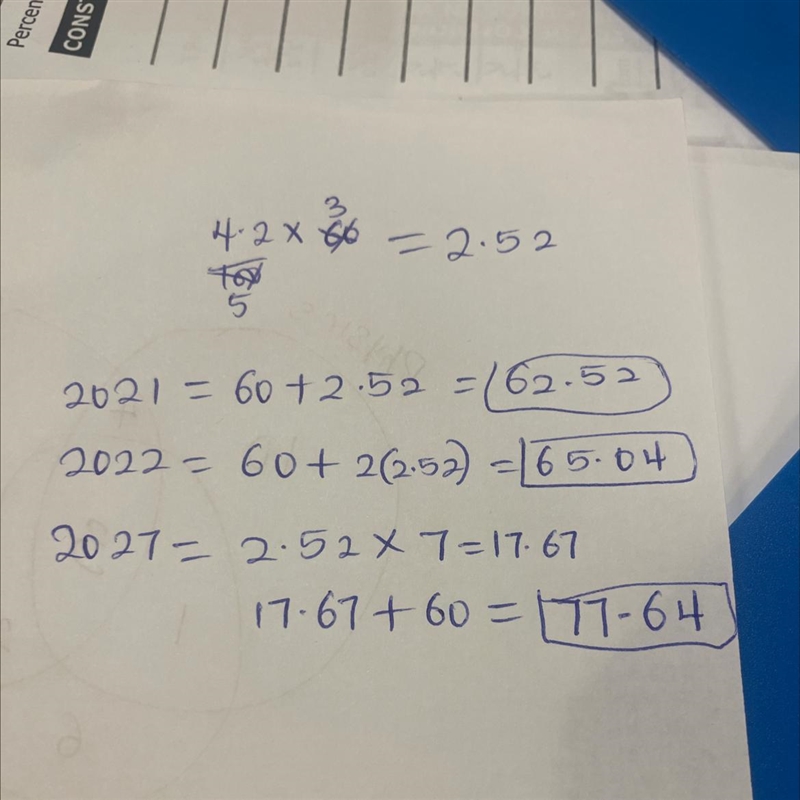 Percen
CONST
3
4.2 x 60 = 2.52
100
5
2021 = 60 + 2.52 = 62.52
2022 = 60 + 2(2.52) = 65.04
2027 = 2.52 x 7 = 17.67
17.67 + 60 = 77.64